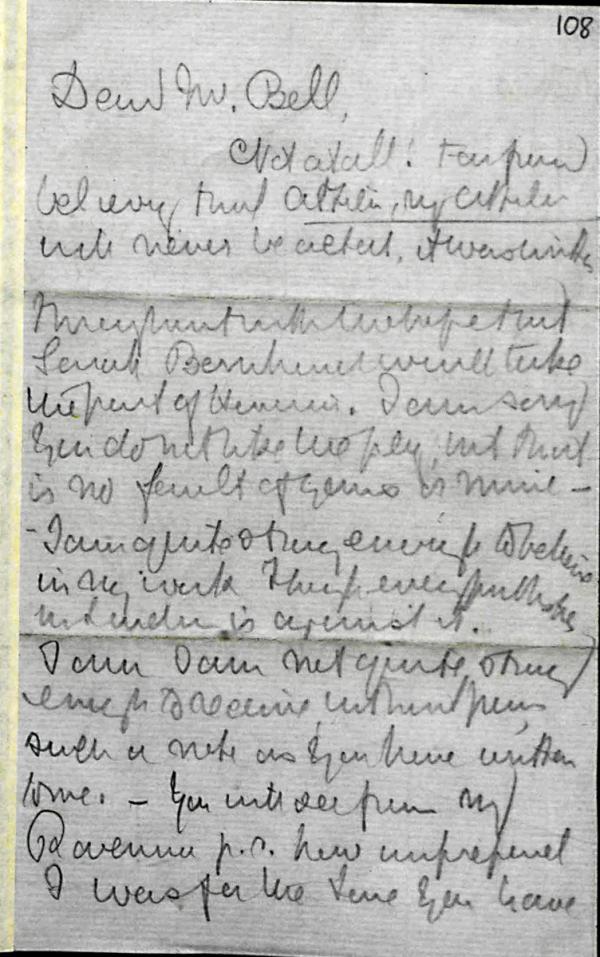 108
Dear Mr. Bell,
Not at all! I am far from
believing that Attila, my Attila
will never be acted. It was written
throughout with the hope that
Sarah Bernhardt would take
the part of I am sorry
you do not like the play, but that
is no fault of yours or mine –
– I am quite strong enough to believe
in my work though every publisher
in is against it.
I am not quite strong
enough to receive, without pain,
such a note as you have written
to me. – You will see from my
Ravenna p.c. how unprepared
I was for the tone you have